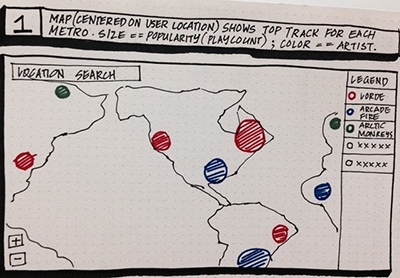 1
MAP (CENTERED ON USER LOCATION) SHOWS TOP TRACK FOR EACH
METRO. SIZE == POPULARITY (PLAYCOUNT); COLOR == ARTIST.
LOCATION SEARCH
LEGEND
LORDE
ARCADE
FIRE
ARCTIC
MONKEYS
XXXXX
XXXXX
+
-